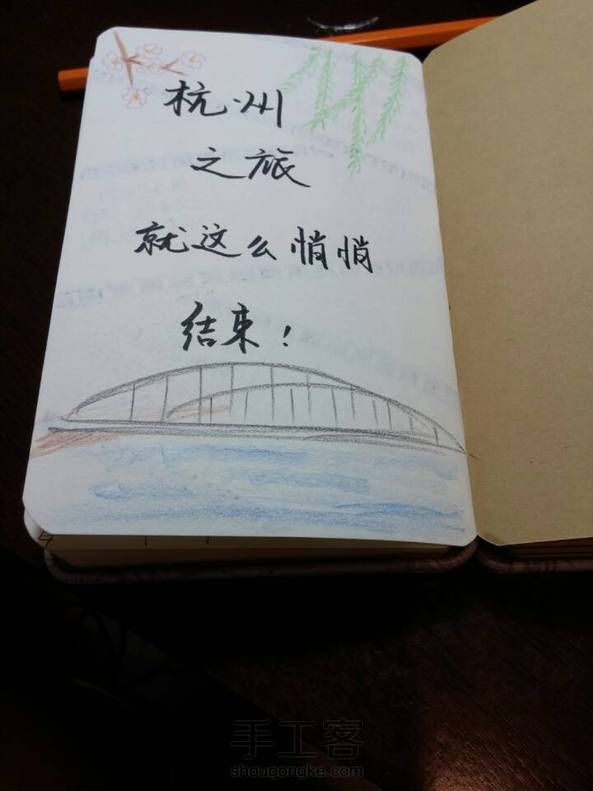 杭州
之旅
就这么悄悄
结束！
手工客
shougongke.com